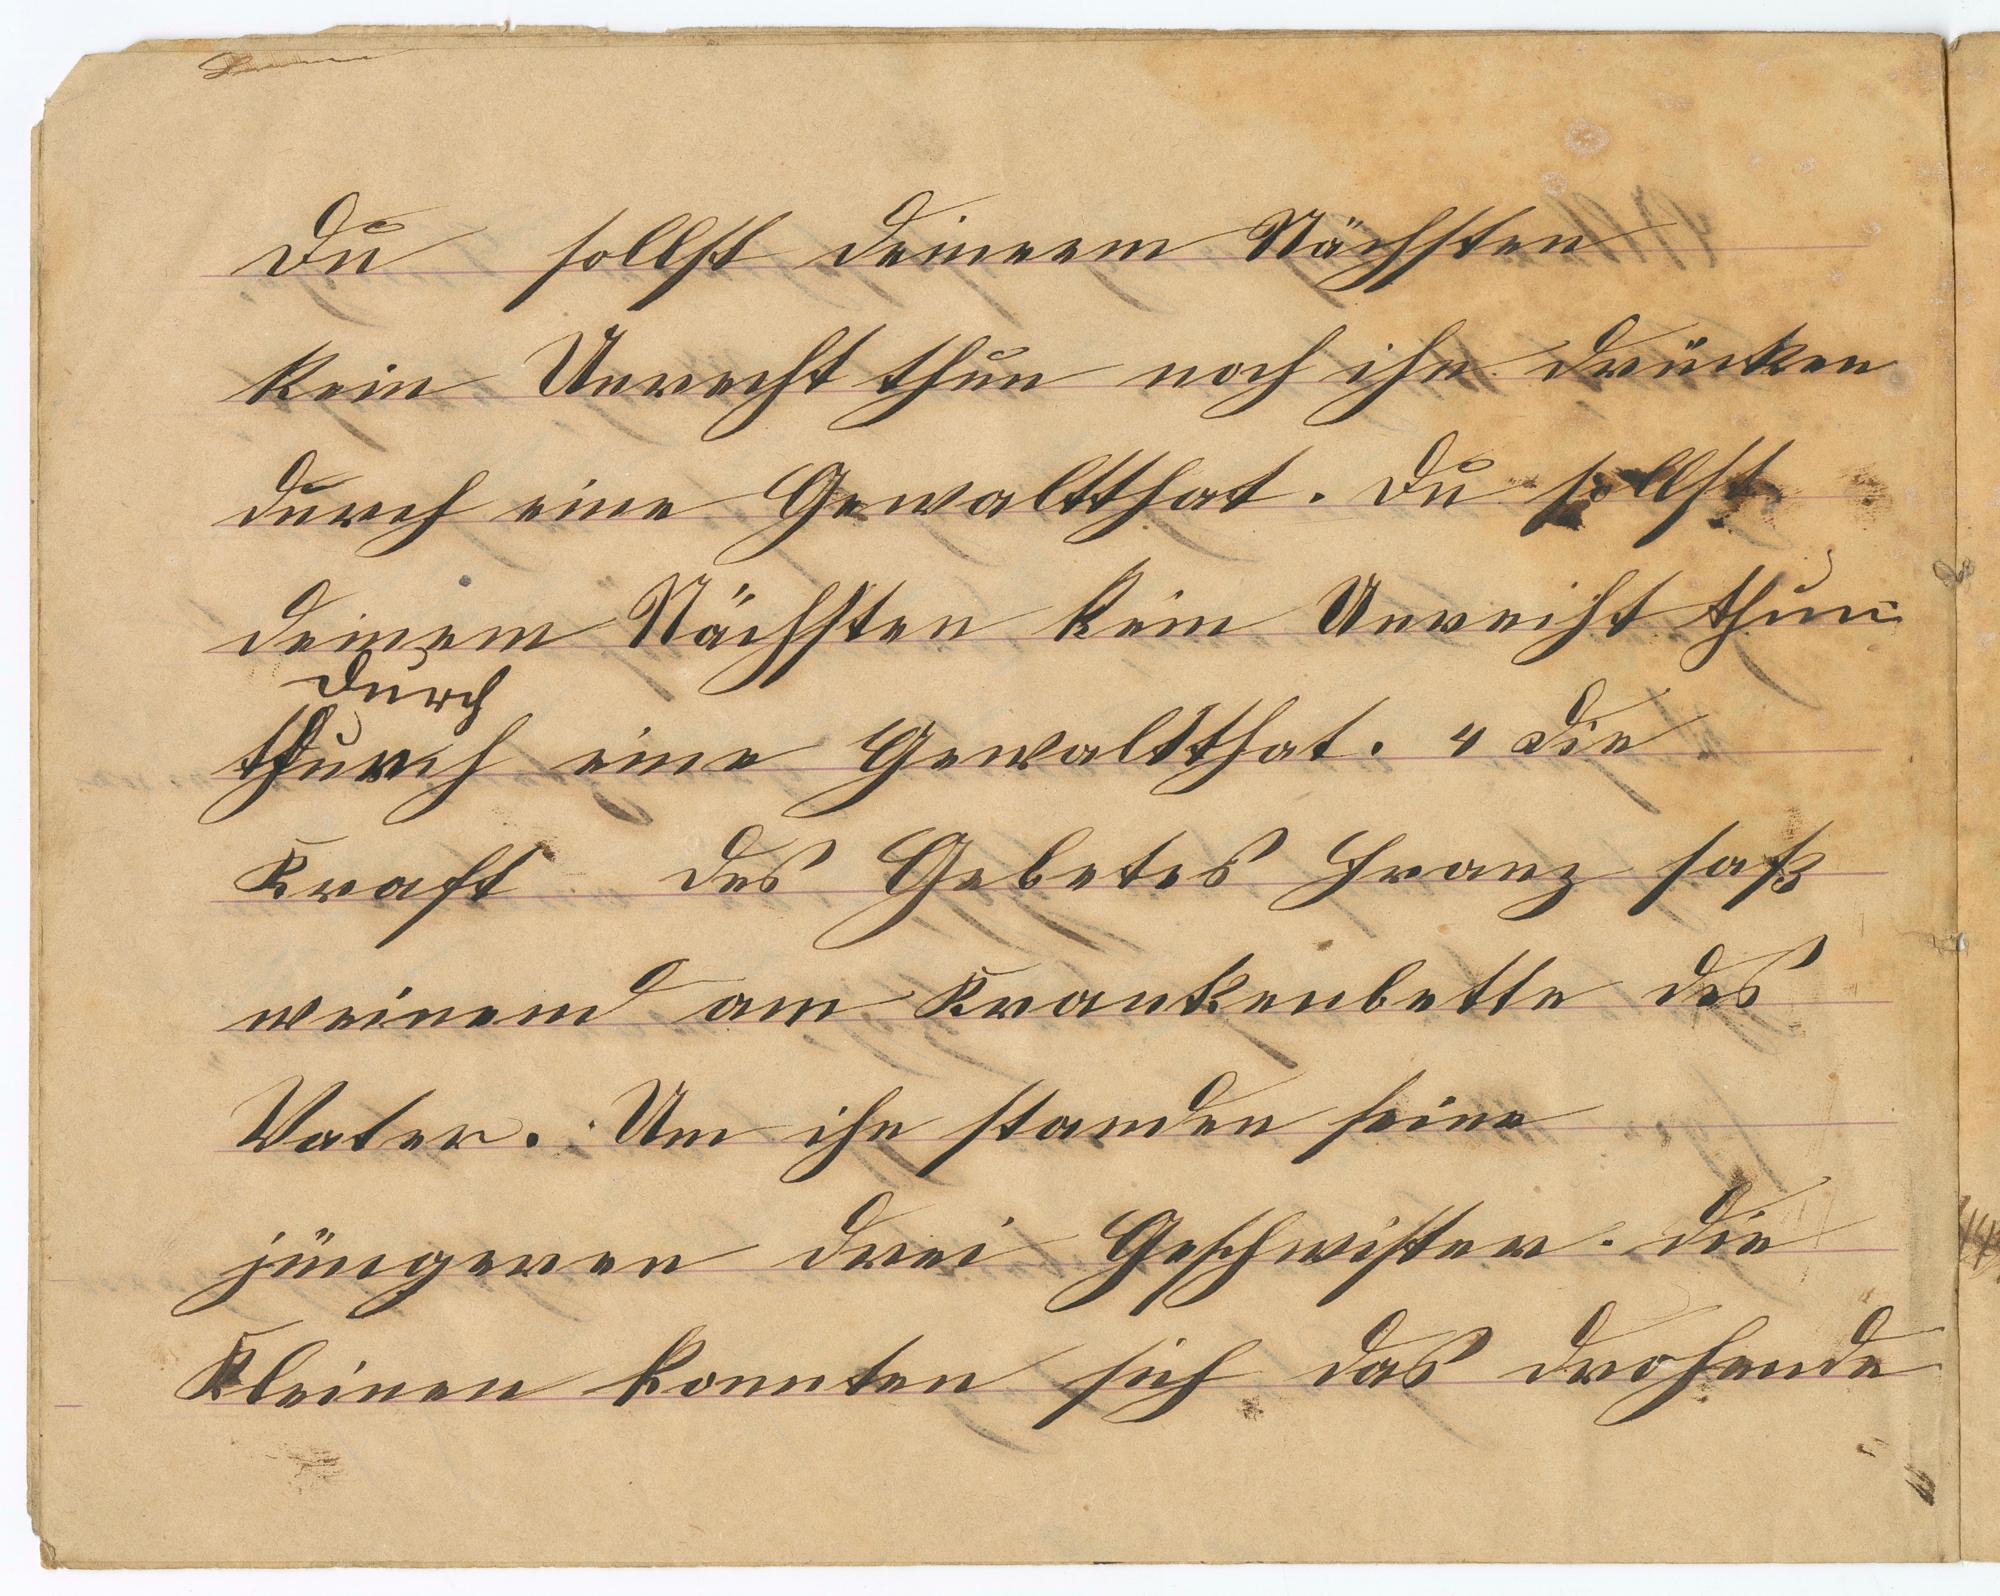 Du sollst deinem Nächsten
kein Unrecht thun noch ihn drücken
durch eine Gewaltthat. Du sollst
deinem Nächsten kein Unreicht thun
durch
thurch eine Gewaltthat. 4 Die
Kraft des Gebetes Franz saß
weinend am Krankenbette des
Vater. Um ihn standen seine
jüngeren drei Geschwister. Die
Kleinen konnten sich das drohende